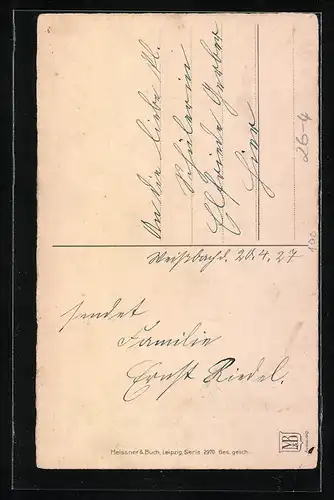 An die liebe kl.
Schülerin
Elfriede Gerber
Hier
Weißbach d. 20.4.27
sendet
Familie
Ernst Riedel.
Meissner & Buch, Leipzig, Serie 2970 Ges. gesch.
MB
26-4